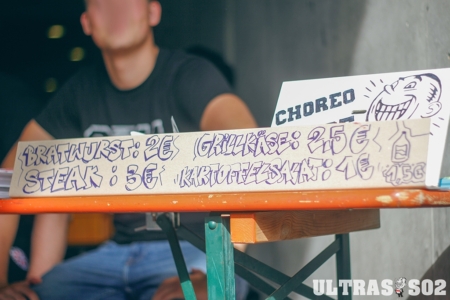 CHOREO
BRATWURST: 2€ GRILLKÄSE: 2,5€
STEAK: 3€ KARTOFFELSALAT: 1€ 1,5€
ULTRAS S02